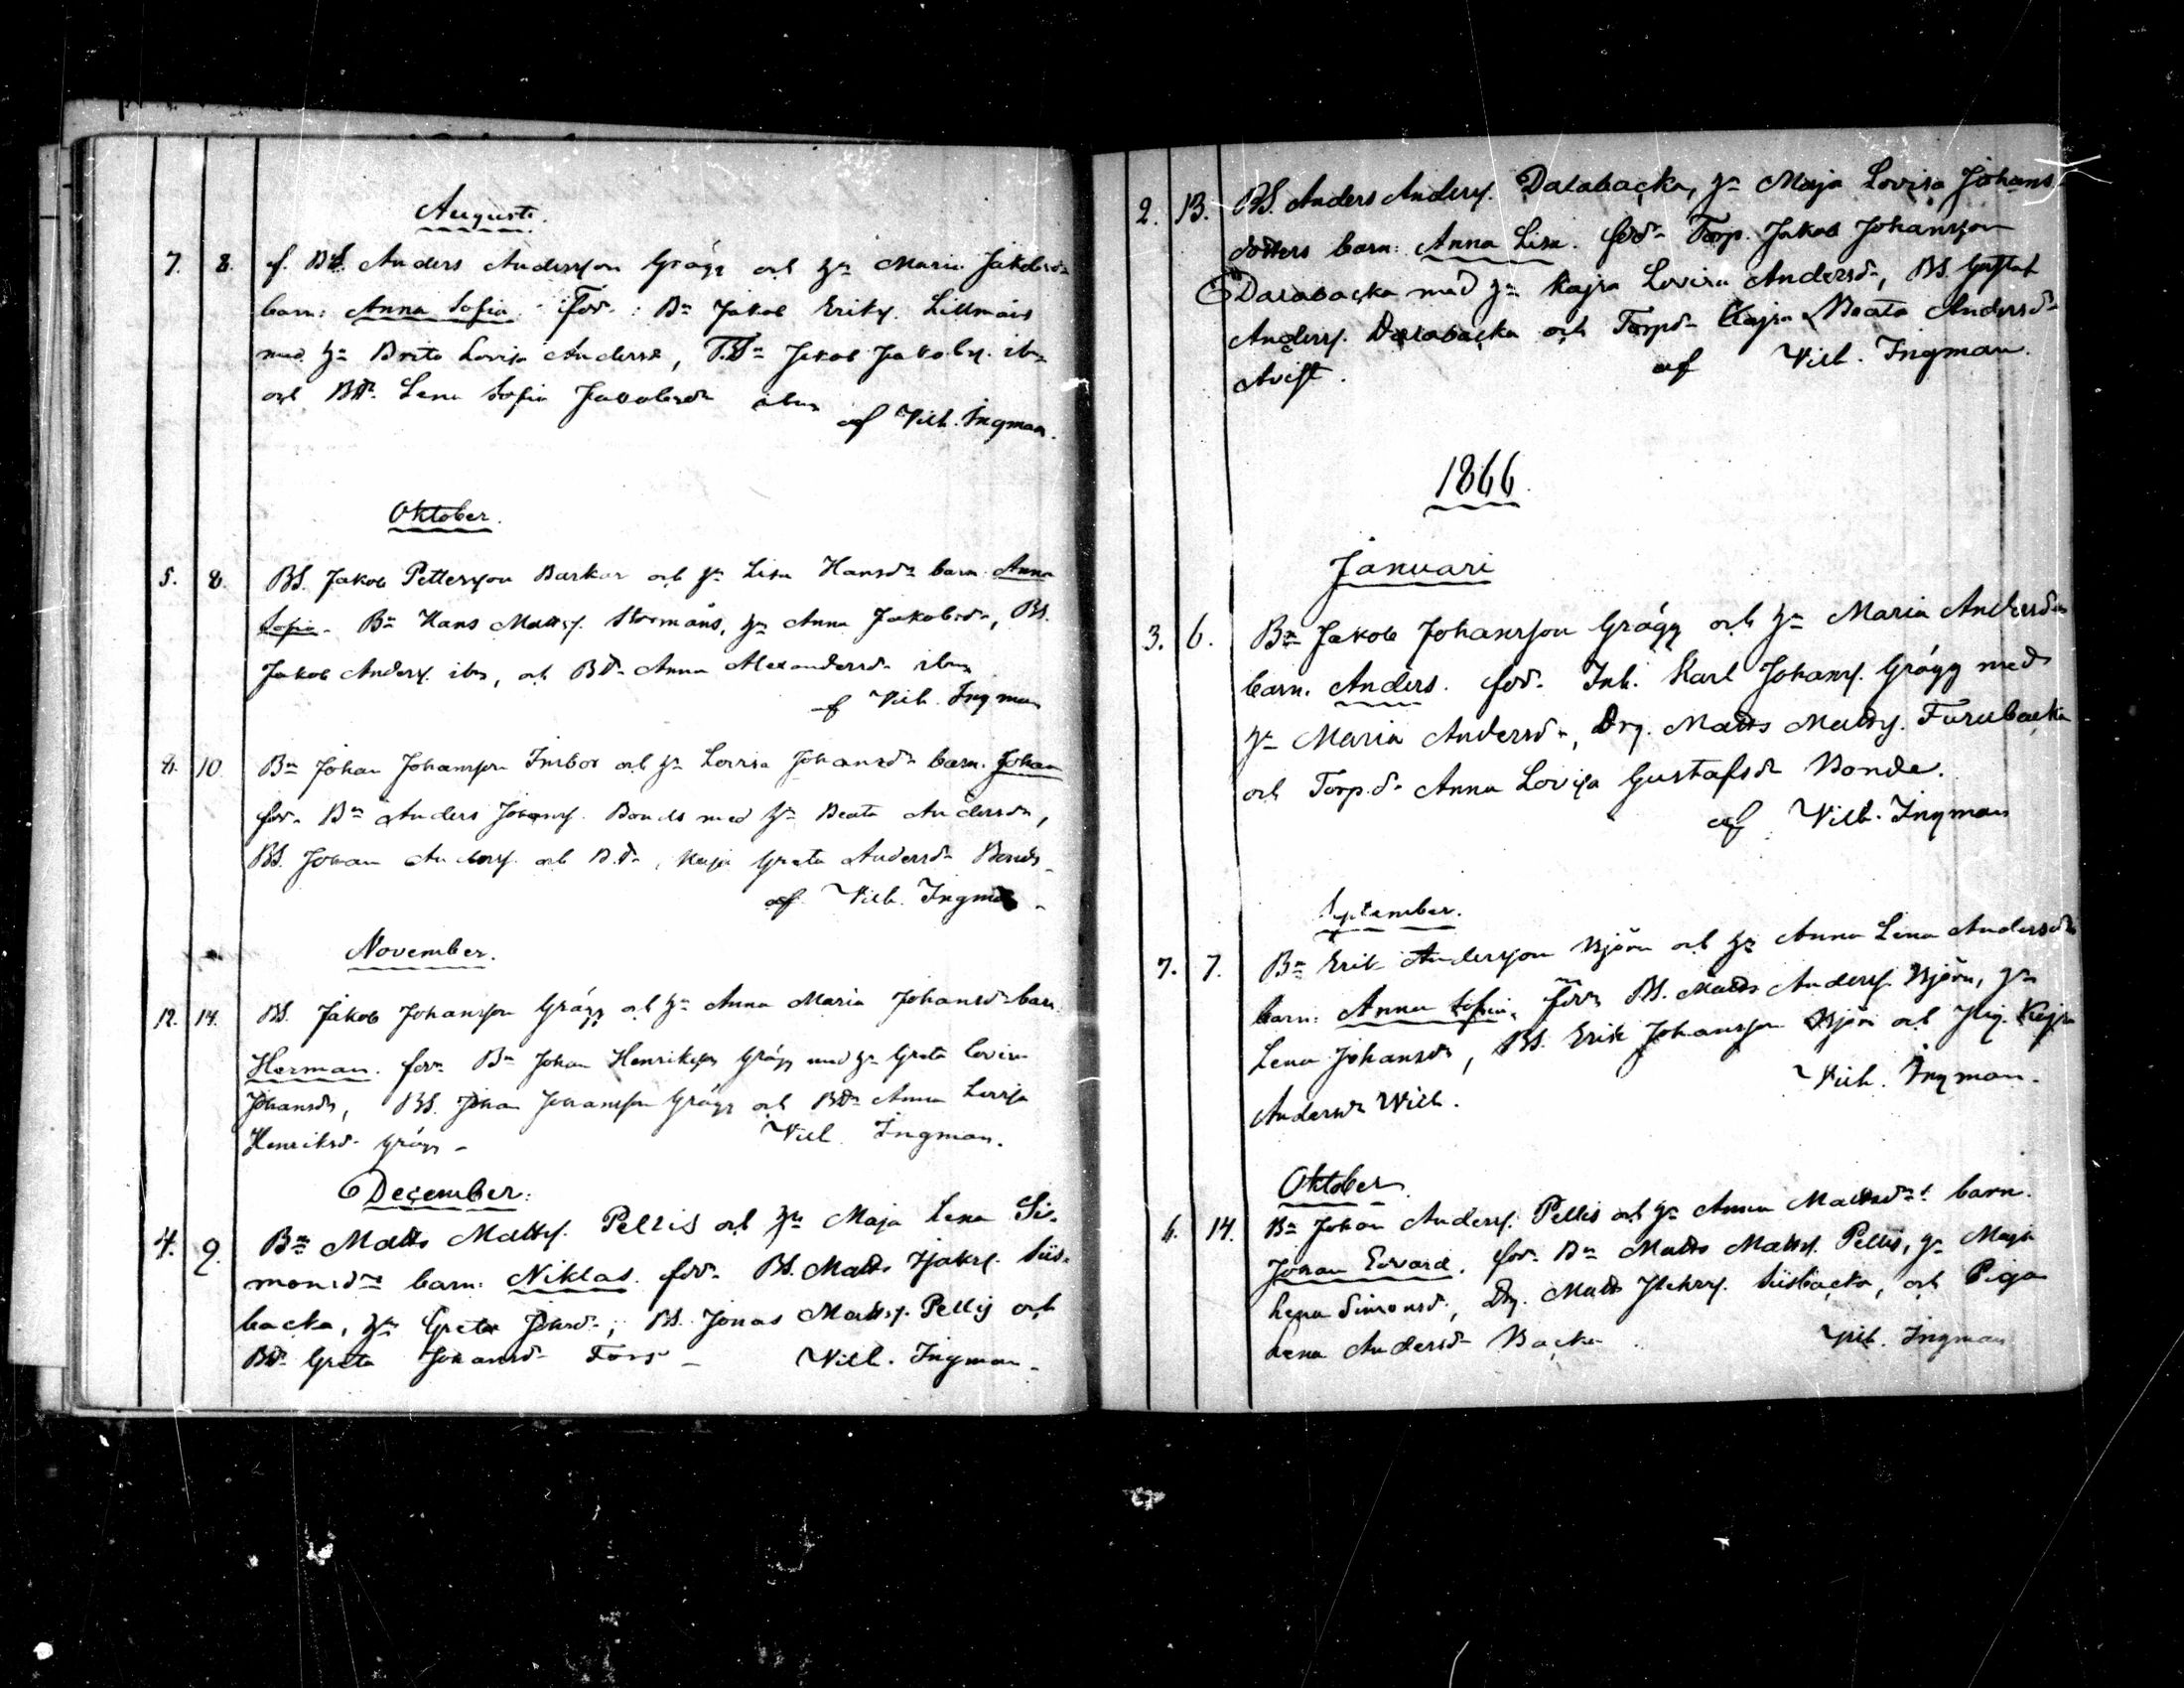 Augusti.
7. 8. f. BS. Anders Andersson Grägg och hn Maria Jakobsdr
barn: Anna Sofia. Fadr: Bn Jakob Eriks. Lillmåns
med hn Brita Lovisa Andersd, Jakob Jakobs. ibm
och BDr. Lena Sofia Jakobsdr ibm
af Vilh. Ingman.
Oktober.
5. 8. BS. Jakob Pettersson Barkar och hn Lisa Hansdr barn Anna
Sofia. Bn Hans Matts. Stormåns, hn Anna Jakobsdr, BS.
Jakob Anders. ibm, och BDr Anna Alexandersdr ibm
af Vilh. Ingman
4. 10. Bn Johan Johansson Inbor och hn Lovisa Johansdr barn. Johan
fadr. Bn Anders Johans. Bonds med hn Beata Andersdr,
BS. Johan Anders. och B.Dr. Kajsa Greta Andersdr Bonds
af Vilh. Ingman
November.
12. 14. BS. Jakob Johansson Grägg och hn Anna Maria Johansdr barn
Herman. fadr. Bn Johan Henriksson Grägg med hn Greta Lovisa
Johansdr, BS. Johan Johansson Grägg och BDr Anna Lovisa
Henriksdr Grägg - Vilh. Ingman.
December.
4. 9. Bn Matts Matts. Pellis och hn Maja Lena Si-
monsdrs barn: Niklas. fadr. BS. Matts Isaks. Siis-
backa, hn Greta Johsdr, BS. Jonas Matts. Pellis och
BDr Greta Johansdr Fors - Vilh. Ingman.
2. 13. BS. Anders Anders. Dalabacka, hn Maja Lovisa Johans-
dotters barn: Anna Lisa. fadr. Torp. Jakob Johansson
Dalabacka med hn Kajsa Lovisa Andersdr, BS. Gustaf
Anders. Dalabacka och Torpdr Kajsa Beata Andersdr
af Vilh. Ingman.
1866.
Januari
3. 6. Bn Jakob Johansson Grägg och hn Maria Andersdrs
barn. Anders. fadr. Inh. Karl Johans. Grägg med
hn Maria Andersdr, Drg. Matts Matts. Furubacka
och Torp.dr Anna Lovisa Gustafsdr Bonde.
af Vilh. Ingman
September.
7. 7. Bn Erik Andersson Björn och hn Anna Lena Andersdrs
barn: Anna Sofia. fadr BS. Matts Anders. Björn, hn
Lena Johansdr, BS. Erik Johansson Björn och Pig. Kajsa
Andersdr Will. Vilh. Ingman.
Oktober.
6. 14. Bn Johan Anders. Pellis och hn Anna Mattsdrs barn.
Johan Edvard. fadr. Bn Matts Matts. Pellis, hn Maja
Lena Simonsd., Drg. Matts Siisbacka, och Piga
Lena Andersdr Backa. Vilh. Ingman